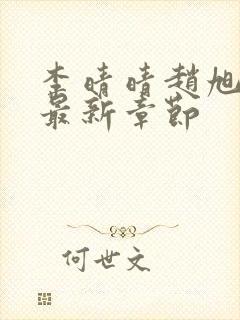 李晴晴趙旭
最新章節
何世文